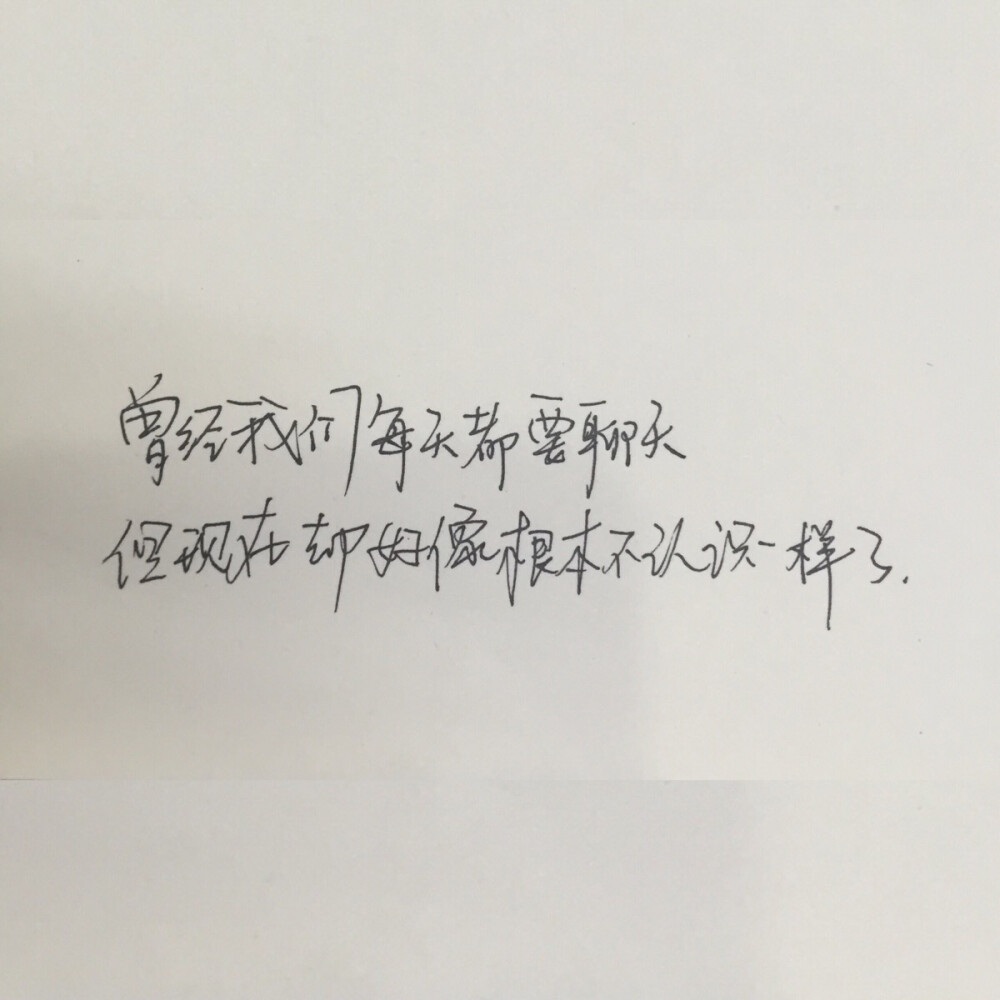 曾经我们每天都要聊天
但现在却好像根本不认识一样了.